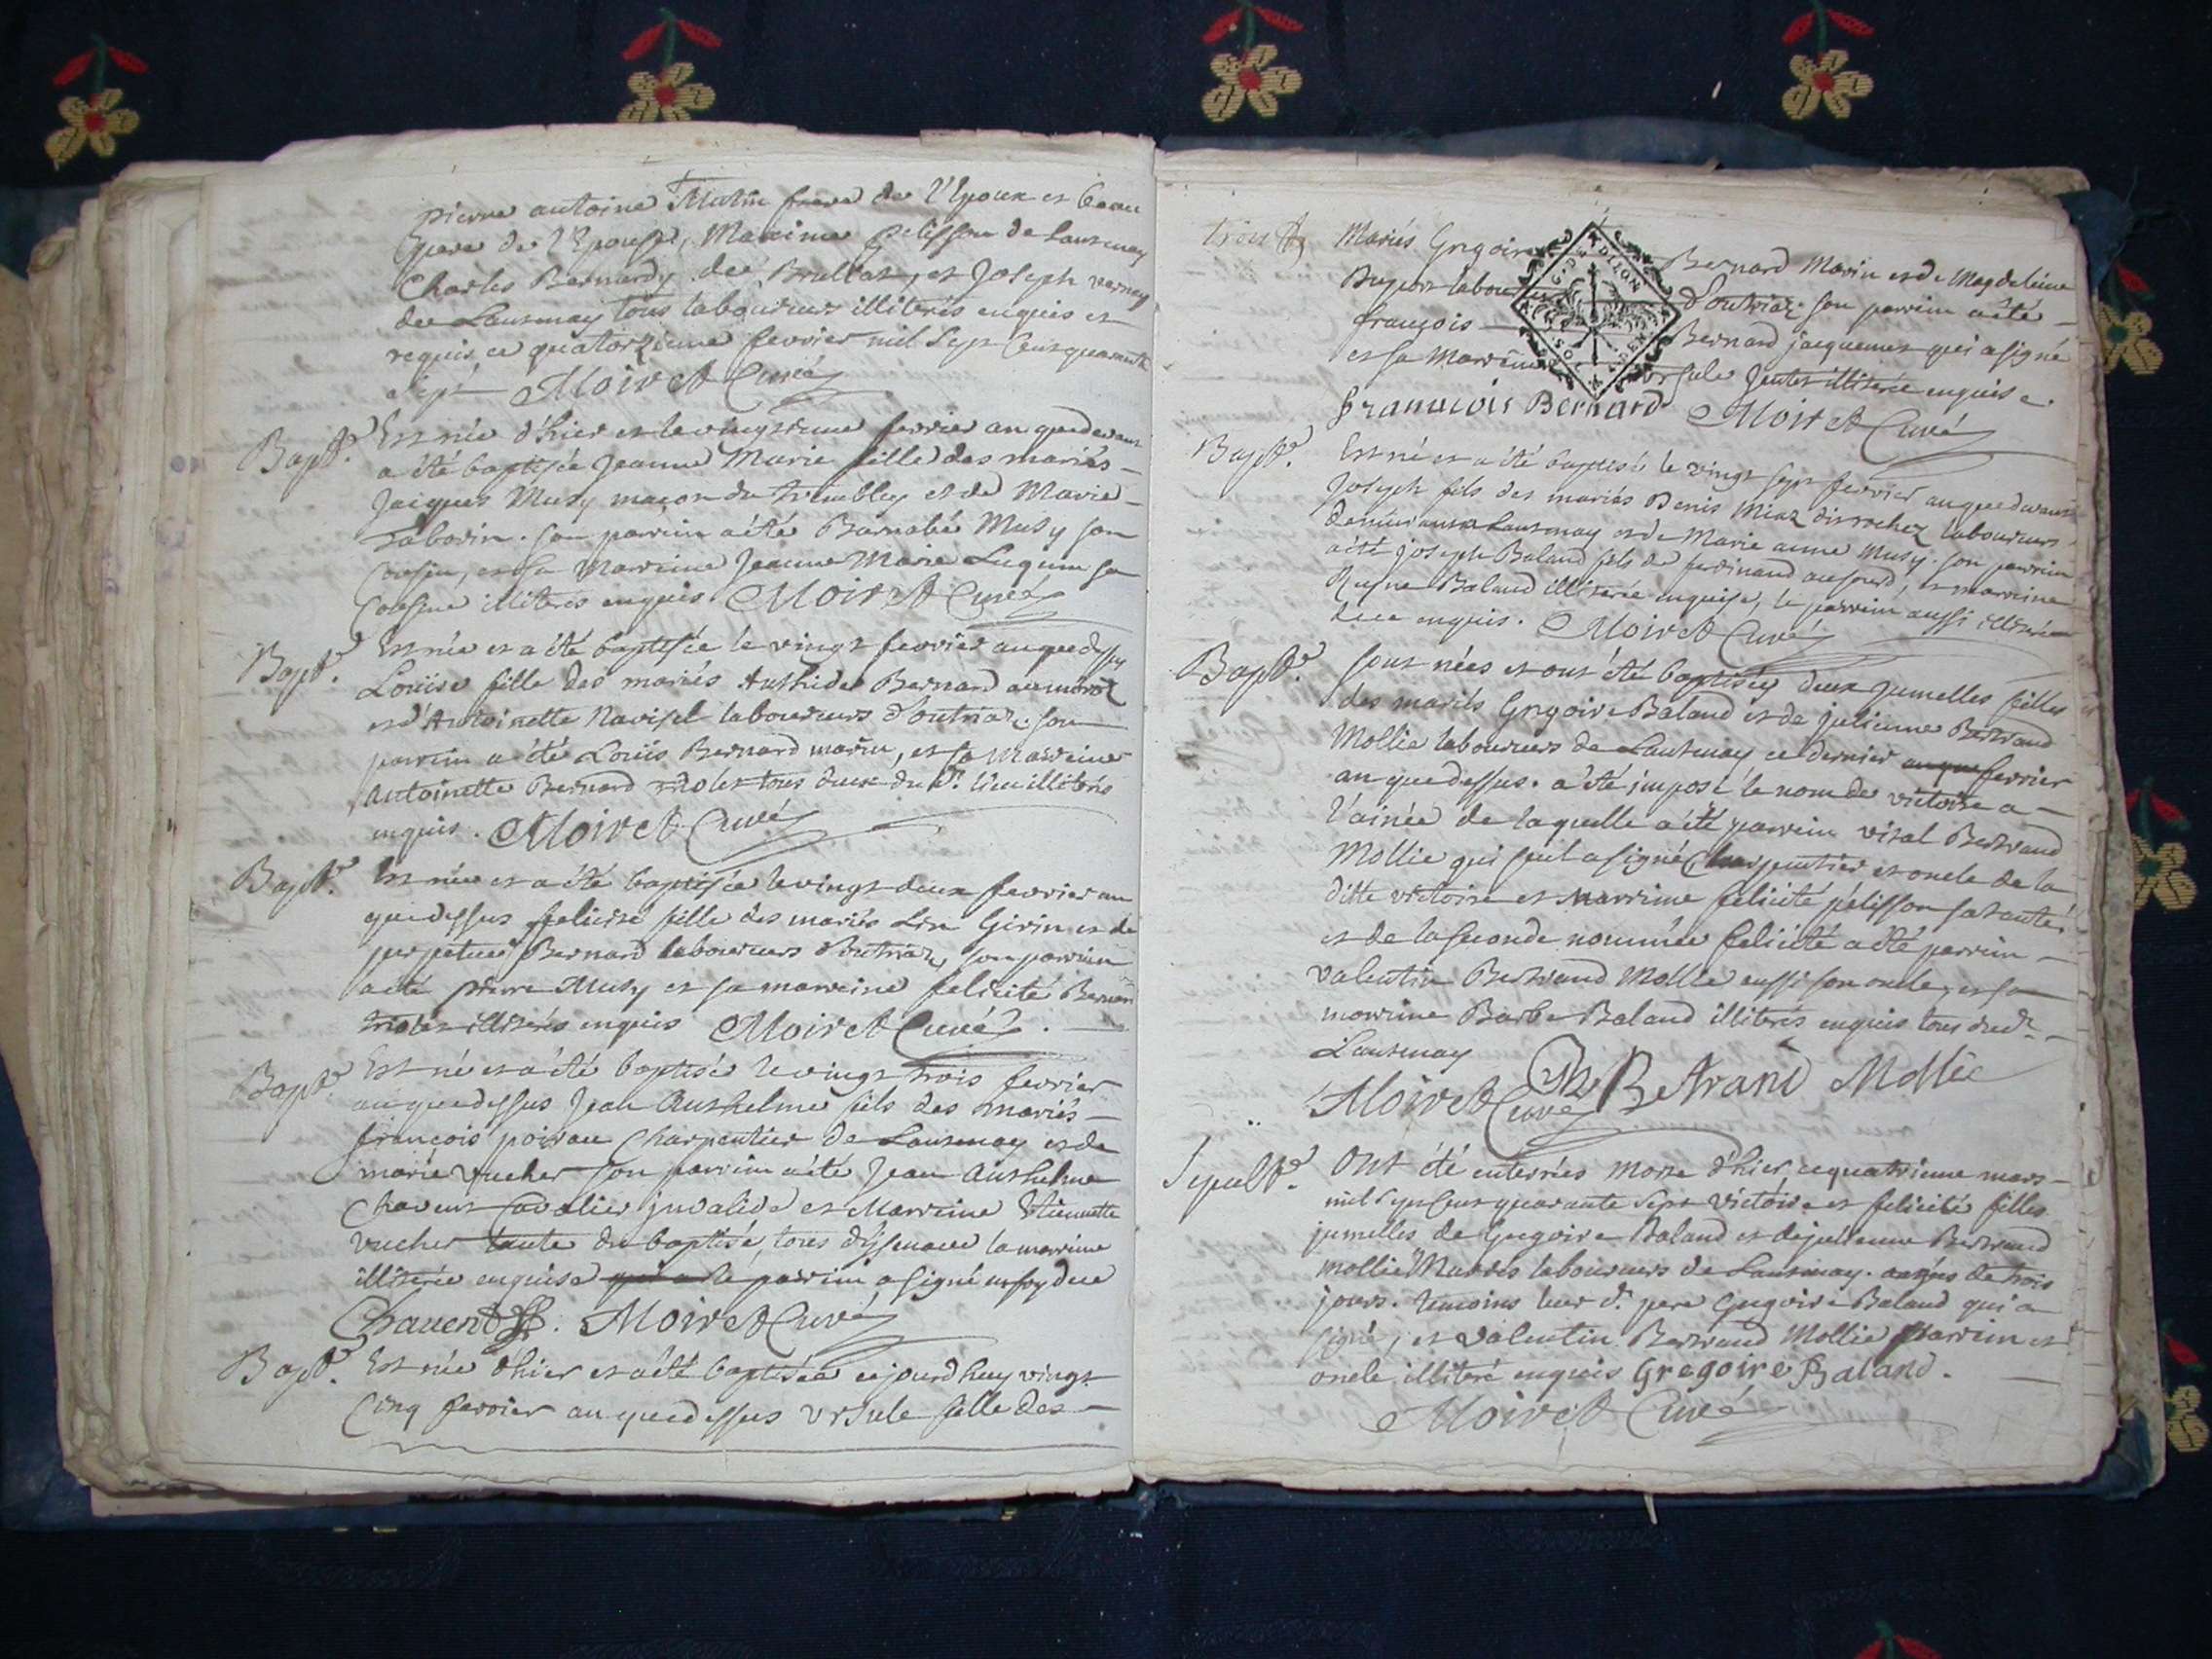 pierre antoine Mutin frere de l'Epoux et beau
pere de l'Epouse, Maxime pelisson de Lantenay
Charles Bernardy de Brullat, et Joseph vernay
de Lantenay tous laboureurs illiterés enquis et
requis ce quatorzieme fevrier mil Sept Cent quarante
Sept Moiret Curé
Bapt.e Est née d'hier et le vingtieme fevrier an que devant
a été baptisée Jeanne Marie fille des mariés
Jacques Musy maçon du tremblay et de Marie
Saborin. son parrin a été Barnabé Musy son
Cousin, et sa Marreine Jeanne Marie sa
Cousine illiterés enquis Moiret Curé
Bapt.e Est née et a été baptisée le vingt fevrier an que dessus
Louïse fille des mariés Anthide Bernard
et d'Antoinette Navisel laboureurs d'outriaz. son
parrin a été Louïs Bernard marin, et sa Marreine
Antoinette Bernard tous deux du d. lieu illiterés
enquis. Moiret Curé
Bapt.e Est née et a été baptisée le vingt deux fevrier an
que dessus felicité fille des mariés Lin Girin et de
perpetue Bernard laboureurs d'outriaz, son parrin
a été pierre Musy et sa marreine felicité Bernard
illiterés enquis Moiret Curé.
Bapt.e Est né et a été baptisé le vingt trois fevrier
an que dessus Jean Anthelme fils des mariés
françois poirau Charpentier de Lantenay et de
marie vucher son parrin a été Jean Anthelme
Chavent Cavalier invalide et Marreine Etiennette
vucher tante du baptisé, tous d'issenave la marreine
illiterée enquise qui a le parrin a signé
Chavent. Moiret Curé
Bapt.e Est née d'hier et a été baptisée ce jourd'huy vingt
Cinq fevrier an que dessus Ursule fille des
trois
Mariés Grigoire Bernard Marin et de Magdeleine
Dupont laboureurs d'outriaz. son parrin a été
françois Bernard jacquemet qui a signé
et sa Marreine Ursule illiterée enquise
françois Bernard Moiret Curé
Bapt.e Est né et a été baptisé le vingt sept fevrier an que devant
Joseph fils des mariés Denis Miaz dit rochez laboureurs
demeurant a Lantenay et de Marie anne Musy. son parrin
a été joseph Baland fils de ferdinand, et marreine
Reyne Baland illiterée enquise, le parrin aussi illiteré
enquis. Moiret Curé
Bapt.e sont nées et ont été baptisées deux jumelles filles
des mariés Grigoire Baland et de julienne Bertrand
Mollie laboureurs de Lantenay, ce dernier an que fevrier
an que dessus. a été imposé le nom de victoire a
l'ainée de laquelle a été parrein vital Bertrand
Mollie qui seul a signé Charpentier et oncle de la
ditte victoire et Marreine felicité pélisson sa tante
et de la seconde nommée felicité a été parrein
valentin Bertrand Mollie aussi son oncle, et sa
marreine Barbe Baland illiterés enquis tous dud.
Lantenay
Moiret Curé Betrand Mollie
Sepult.e Ont été enterrées morte d'hier, ce quatrieme mars
mil Sept Cent quarante Sept victoire et felicité filles
jumelles de Gregoire Baland et de julienne Bertrand
mollie Mariés laboureurs de Lantenay. agées de trois
jours. temoins leur d. pere Gregoire Baland qui a
signé, et valentin Bertrand Mollie parrein et
oncle illiteré enquis Gregoire Baland.
Moiret Curé